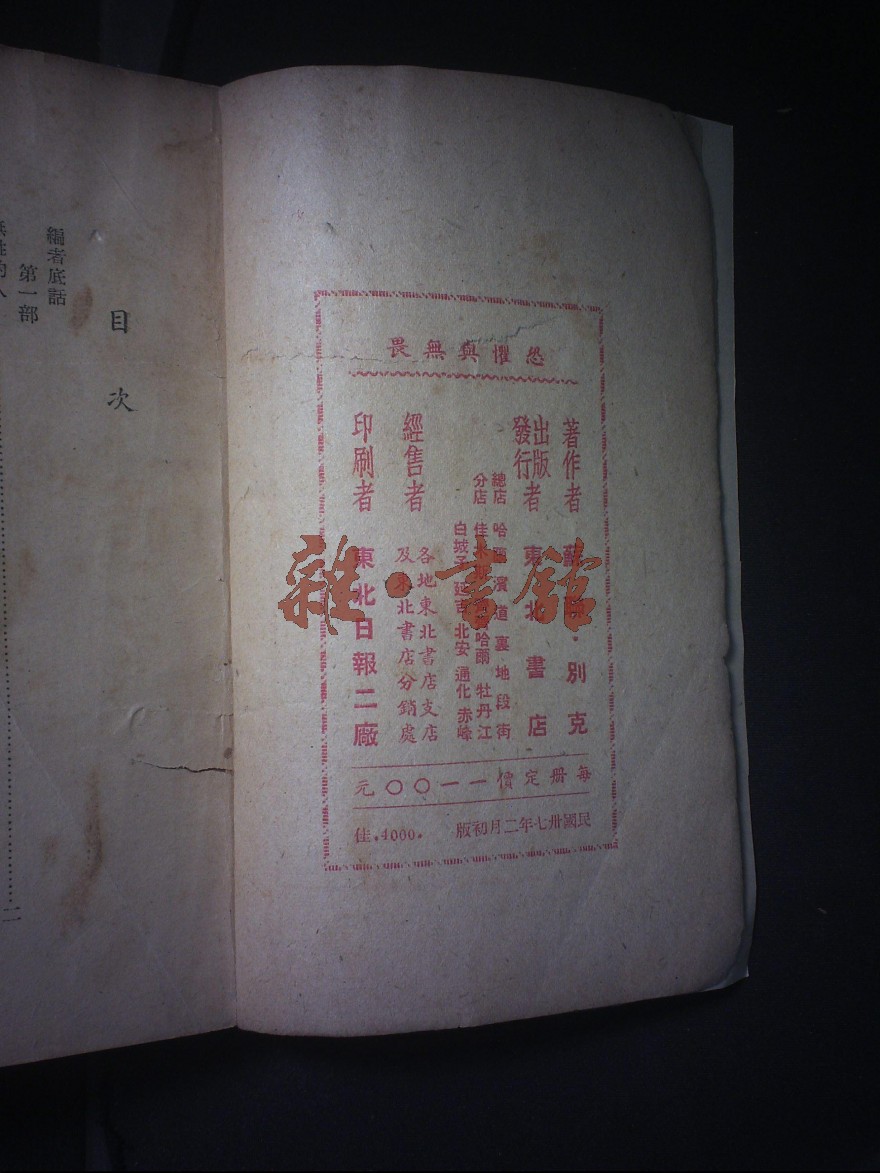 恐懼與無畏
著作者 蘇 ・別克
出版
發行者 東北書店
總店 哈爾濱道裏地段街
分店 佳木斯 哈爾 牡丹江
白城子 延吉 北安 通化 赤峰
經售者 各地東北書店支店
及東北書店分銷處
印刷者 東北日報二廠
每册定價一一〇〇元
民國卅七年二月初版 佳.4000.
目次
編者底話
第一部
雜・書館